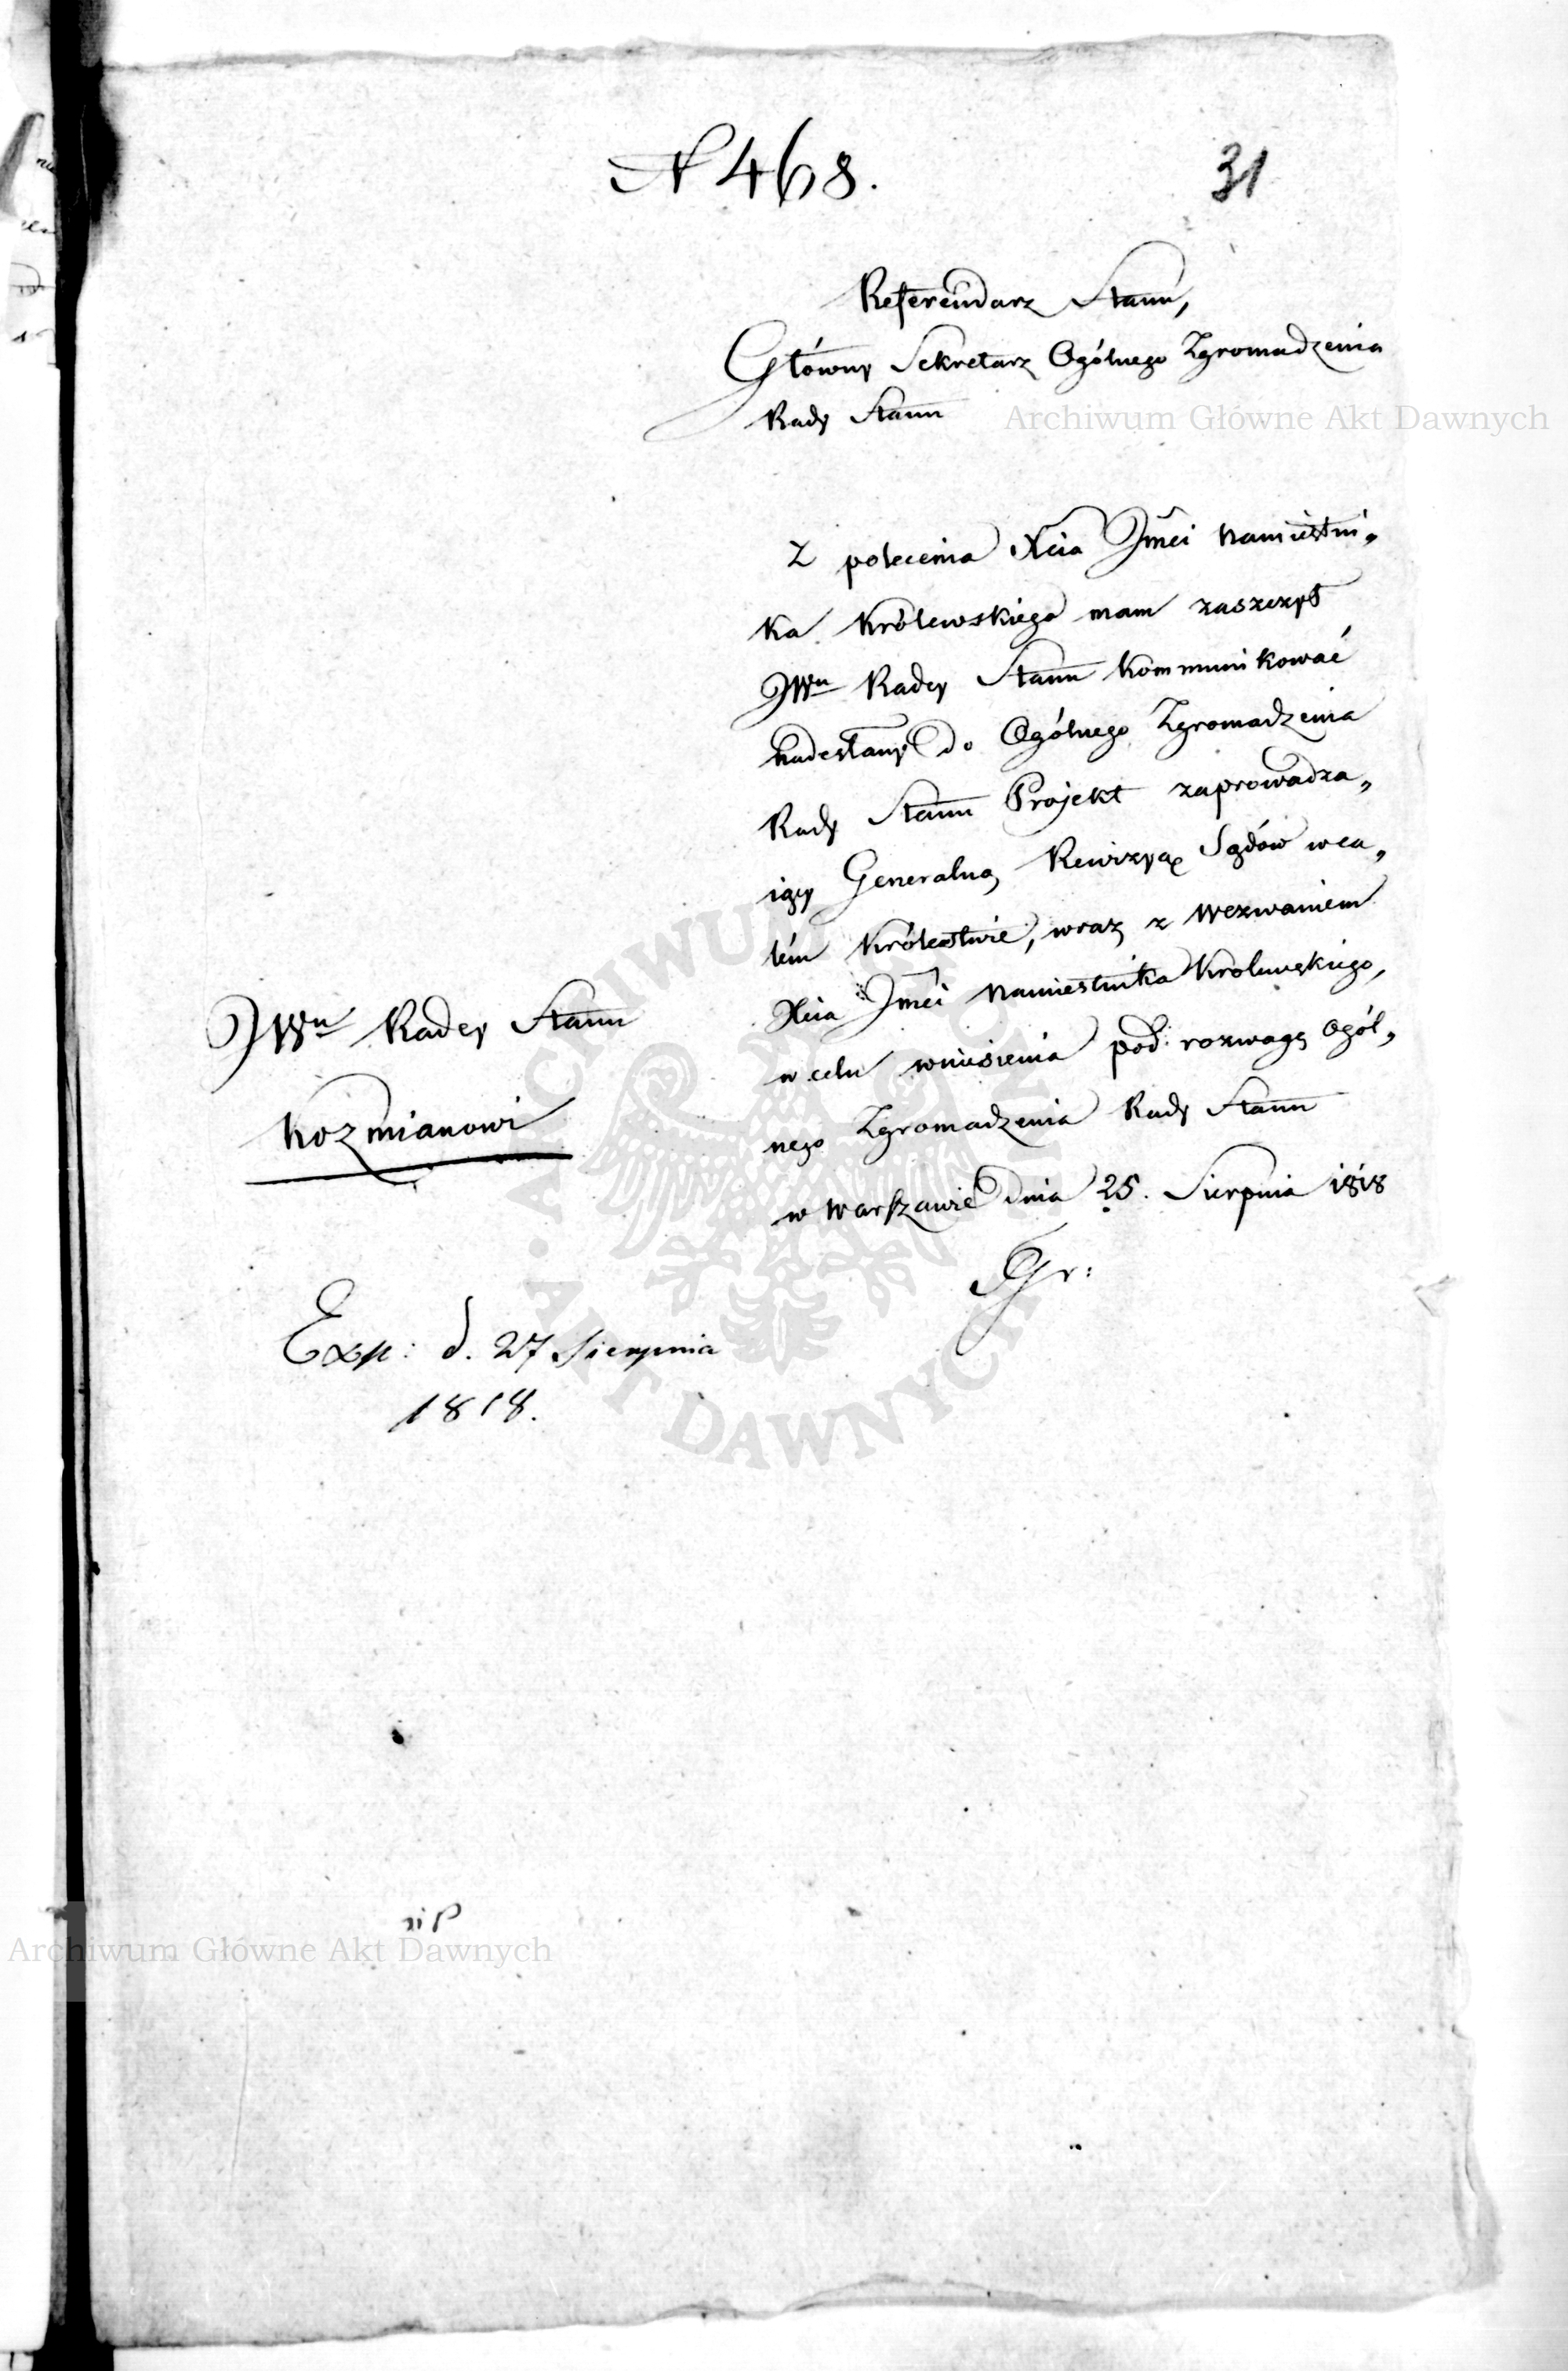 N 468.
31
Referendarz Stanu,
Główny Sekretarz Ogólnego Zgromadzenia
Rady Stanu
Archiwum Główne Akt Dawnych
Z polecenia Xcia Jmci Namiestni„
ka Królewskiego mam zaszczyt
JWu Radcy Stanu kommunikować
nadesłany do Ogólnego Zgromadzenia
Rady Stanu Projekt zaprowadza„
iący Generalną Rewizyą Sądów w ca„
łém Królestwie, wraz z wezwaniem
Xcia Jmci Namiestnika Krolewskiego,
w celu wniesienia pod rozwagę Ogól„
nego Zgromadzenia Rady Stanu
w Warszawie dnia 25. Sierpnia 1818
JWu Radcy Stanu
Kozmianowi
Exp: d. 27 Sierpnia
1818.
ARCHIWUM GŁÓWNE AKT DAWNYCH
Archiwum Główne Akt Dawnych